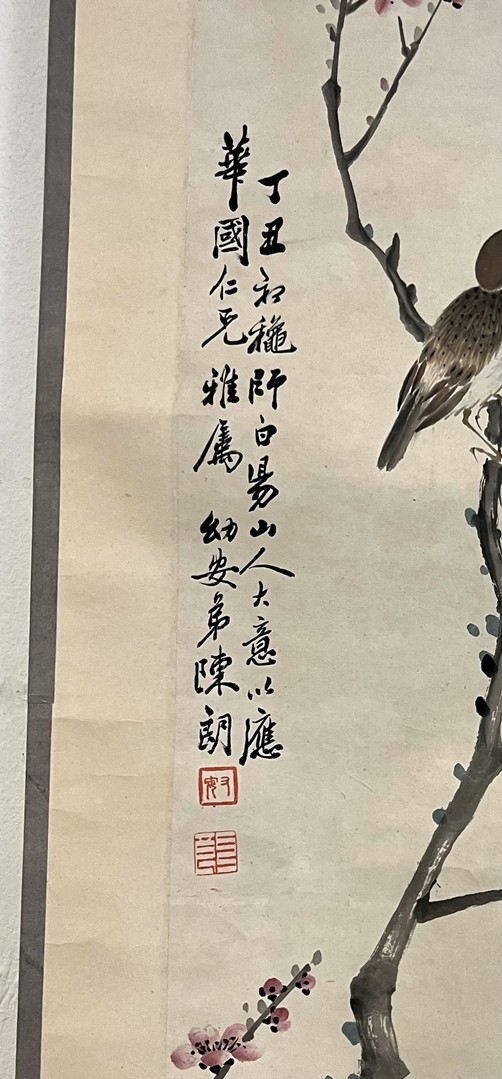 丁丑初龝師白昜山人大意以應
華國仁兄雅屬 幼安弟陳朗